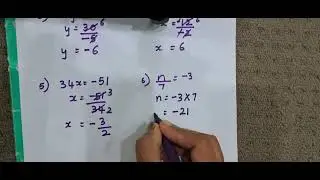 y = 30 6 / -5
y = -6
-12 6 / -2
x = 6
5) 34x = -51
x = -51 3 / 34 2
x = -3/2
6) n/7 = -3
n = -3 x 7
= -21